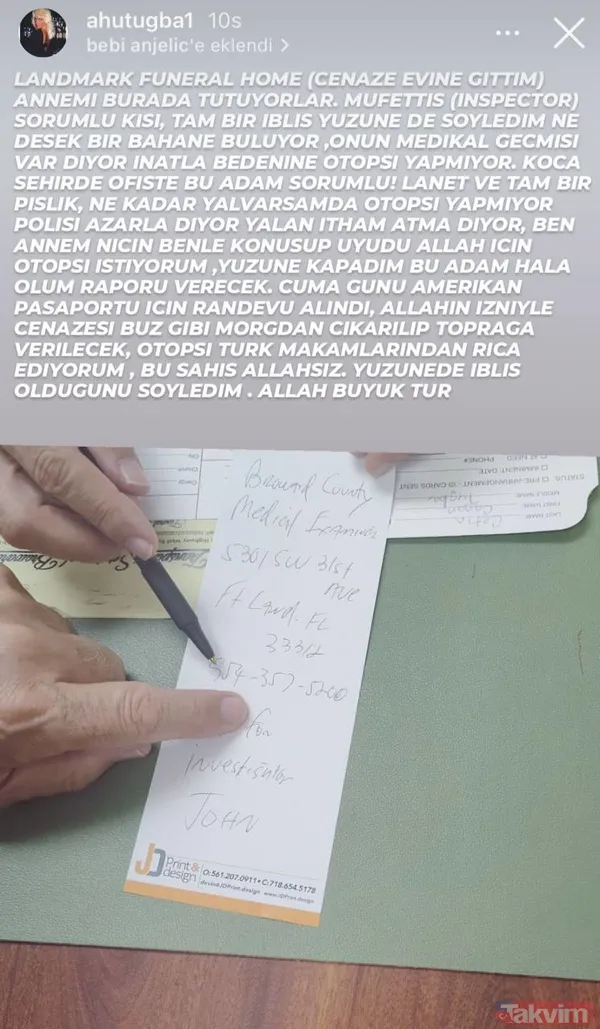 ahutugba1 10s
bebi anjelic'e eklendi >
LANDMARK FUNERAL HOME (CENAZE EVINE GITTIM)
ANNEMI BURADA TUTUYORLAR. MUFETTIS (INSPECTOR)
SORUMLU KISI, TAM BIR IBLIS YUZUNE DE SOYLEDIM NE
DESEK BIR BAHANE BULUYOR ,ONUN MEDIKAL GECMISI
VAR DIYOR INATLA BEDENINE OTOPSI YAPMIYOR. KOCA
SEHIRDE OFISTE BU ADAM SORUMLU! LANET VE TAM BIR
PISLIK, NE KADAR YALVARSAMDA OTOPSI YAPMIYOR
POLISI AZARLA DIYOR YALAN ITHAM ATMA DIYOR, BEN
ANNEM NICIN BENLE KONUSUP UYUDU ALLAH ICIN
OTOPSI ISTIYORUM ,YUZUNE KAPADIM BU ADAM HALA
OLUM RAPORU VERECEK. CUMA GUNU AMERIKAN
PASAPORTU ICIN RANDEVU ALINDI, ALLAHIN IZNIYLE
CENAZESI BUZ GIBI MORGDAN CIKARILIP TOPRAGA
VERILECEK, OTOPSI TURK MAKAMLARINDAN RICA
EDIYORUM , BU SAHIS ALLAHSIZ. YUZUNEDE IBLIS
OLDUGUNU SOYLEDIM . ALLAH BUYUK TUR
STATUS: PRE-ARRANGEMENT CARDS SENT
IMMINENT DATE
AT NEED PHONE#
LAST NAME
FIRST NAME
MIDDLE NAME
Broward County
Medical Examiner
5301 SW 31st
Ave
Ft Laud. FL
33312
954-357-5200
for
investigator
JOHN
JD Print & design
O:561.207.0911 • C:718.654.5178
devin@JDPrint.design www.JDPrint.design
Takvim